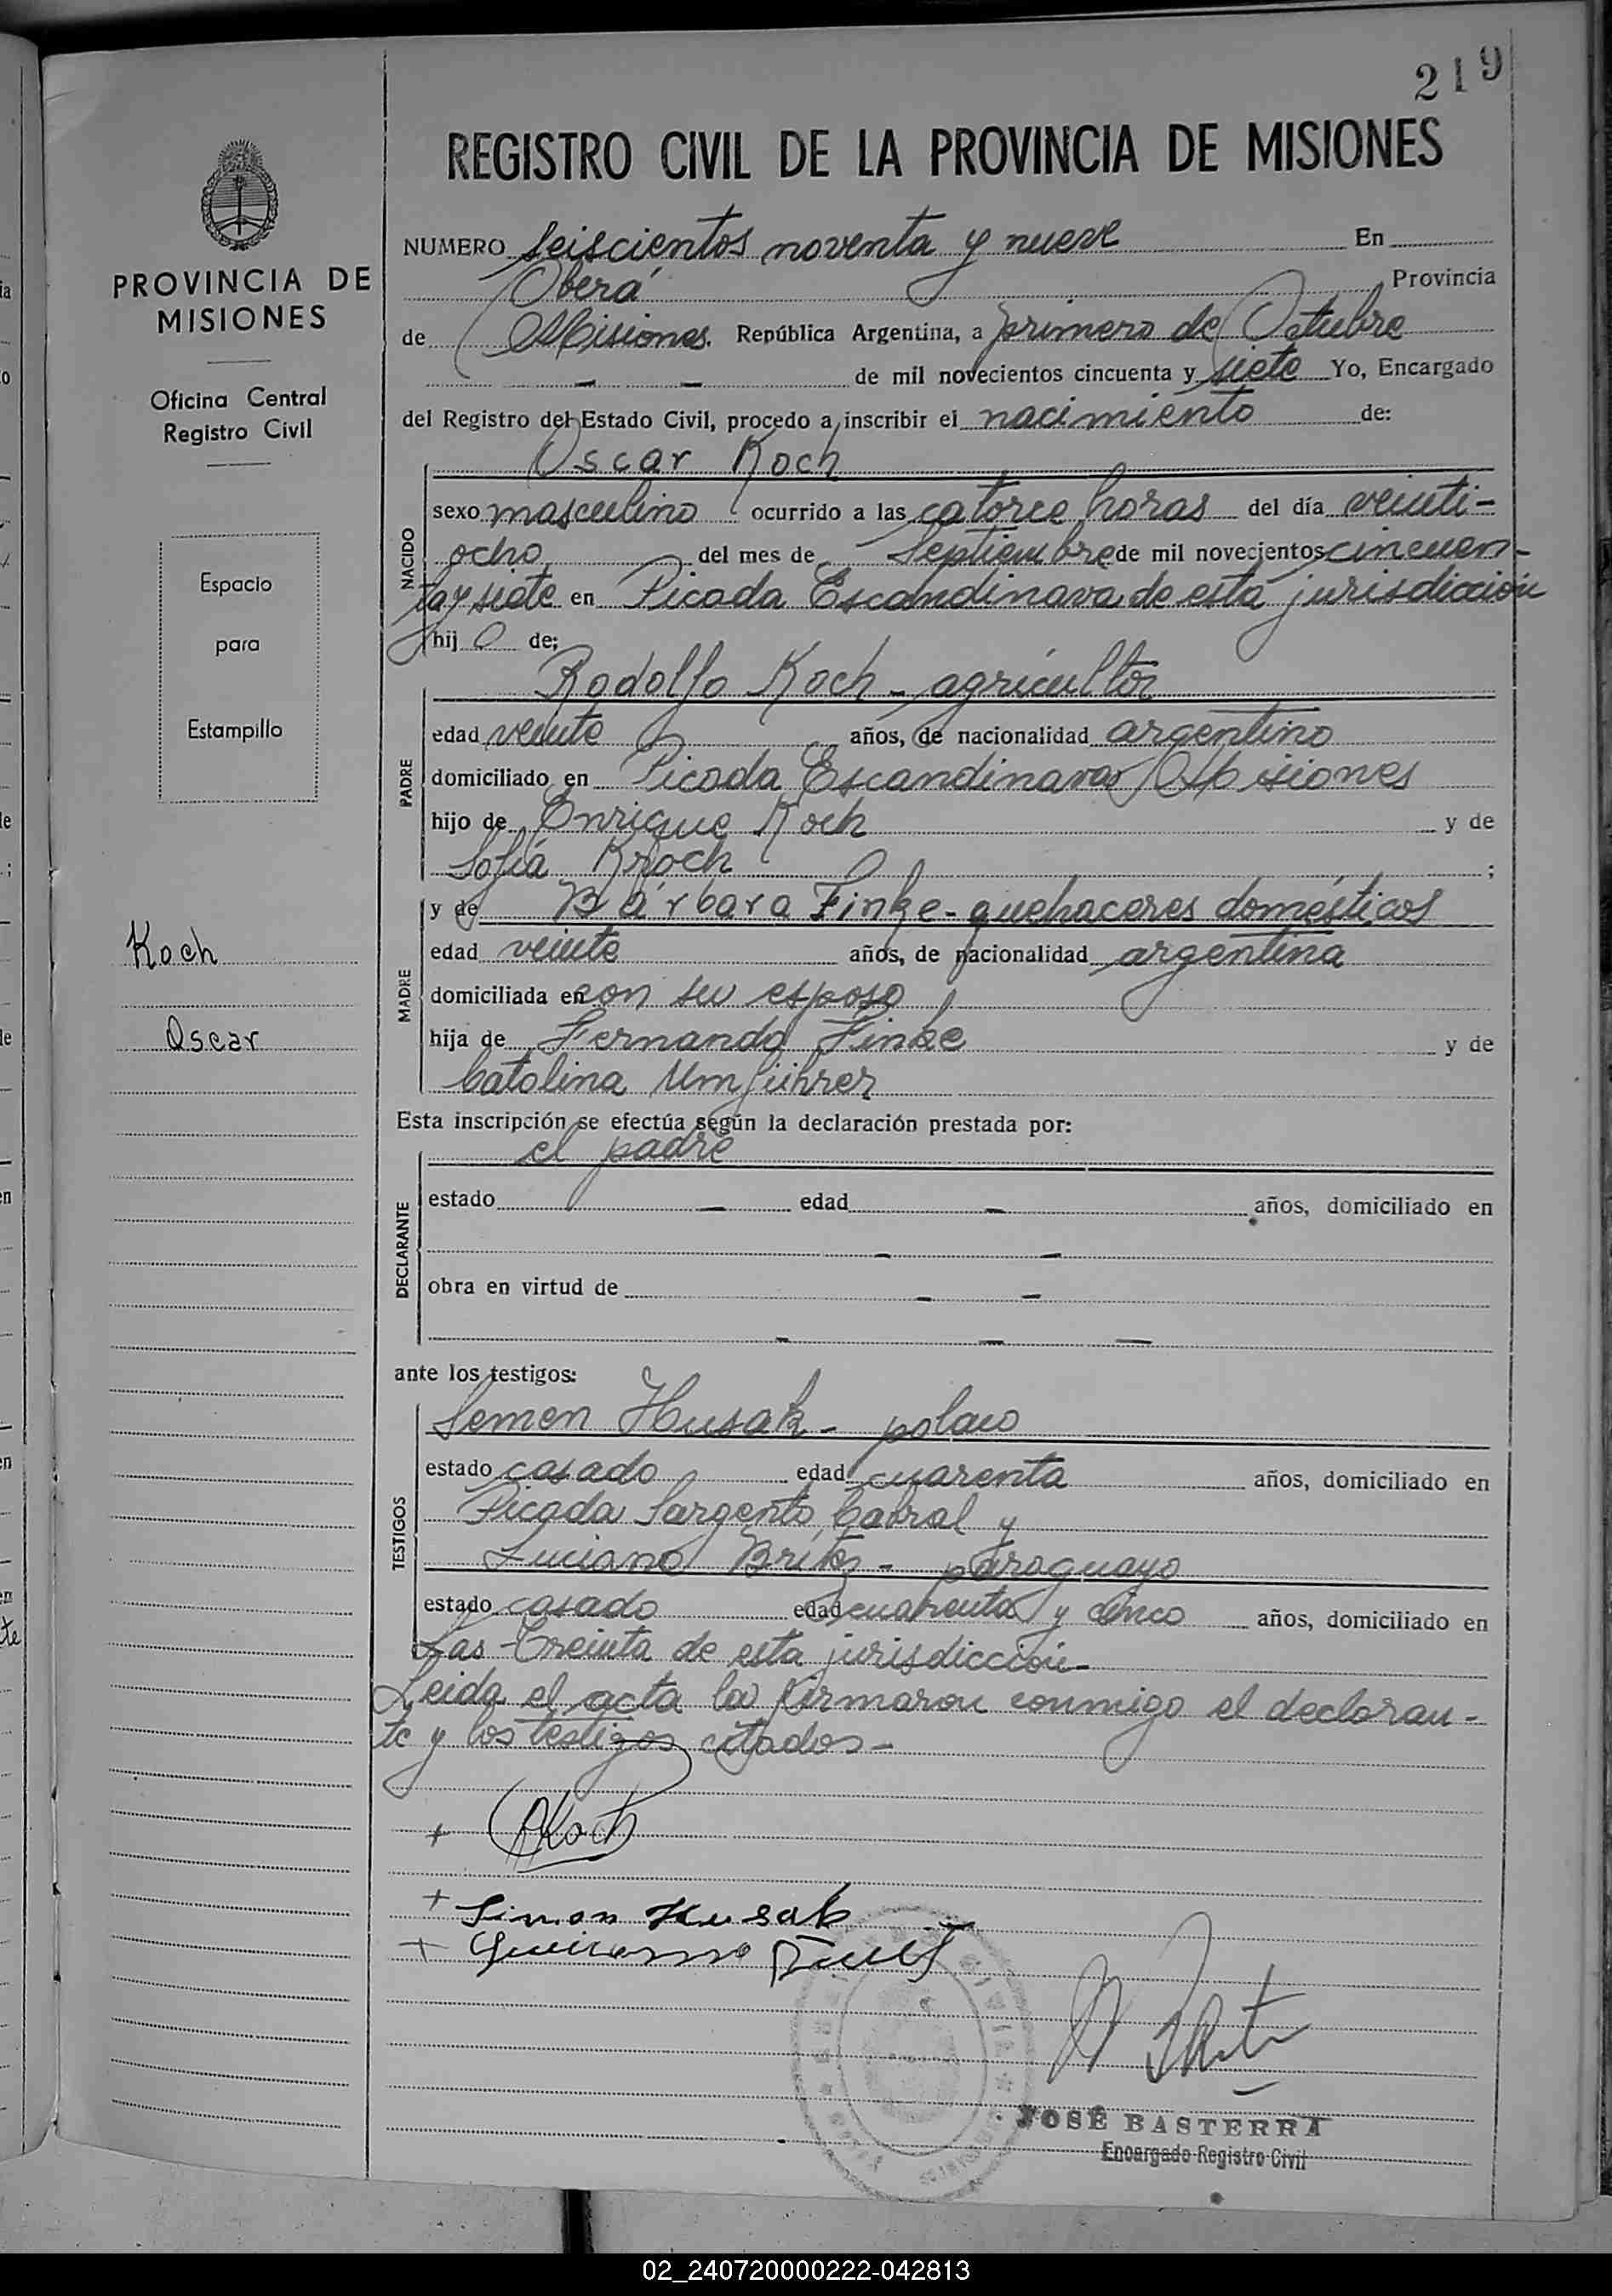 219
REGISTRO CIVIL DE LA PROVINCIA DE MISIONES
PROVINCIA DE
MISIONES
Oficina Central
Registro Civil
Espacio
para
Estampillo
Koch
Oscar
NUMERO Seiscientos noventa y nueve En
Oberá Provincia
de Misiones. República Argentina, a primero de Octubre
de mil novecientos cincuenta y siete Yo, Encargado
del Registro del Estado Civil, procedo a inscribir el nacimiento de:
Oscar Koch
NACIDO
sexo masculino ocurrido a las catorce horas del día veinti-
ocho del mes de Septiembre de mil novecientos cincuen-
ta y siete en Picada Escandinava de esta jurisdicción
hij o de:
Rodolfo Koch - agricultor
PADRE
edad veinte años, de nacionalidad argentino
domiciliado en Picada Escandinava Misiones
hijo de Enrique Koch y de
Sofía Kroch ;
y de Bárbara Finke - quehaceres domésticos
MADRE
edad veinte años, de nacionalidad argentina
domiciliada en con su esposo
hija de Fernando Finke y de
Catalina Umführer
Esta inscripción se efectúa según la declaración prestada por:
el padre
DECLARANTE
estado - edad - años, domiciliado en
- -
obra en virtud de - -
- - -
ante los testigos:
Semen Husak - polaco
TESTIGOS
estado casado edad cuarenta años, domiciliado en
Picada Sargento Cabral y
Luciano Britez - paraguayo
estado casado edad cuarenta y cinco años, domiciliado en
Las Treinta de esta jurisdicción -
Leida el acta la firmaron conmigo el declaran-
te y los testigos citados -
+ RKoch
+ Simon Husak
+
JOSÉ BASTERRA
Encargado Registro Civil
02_240720000222-042813